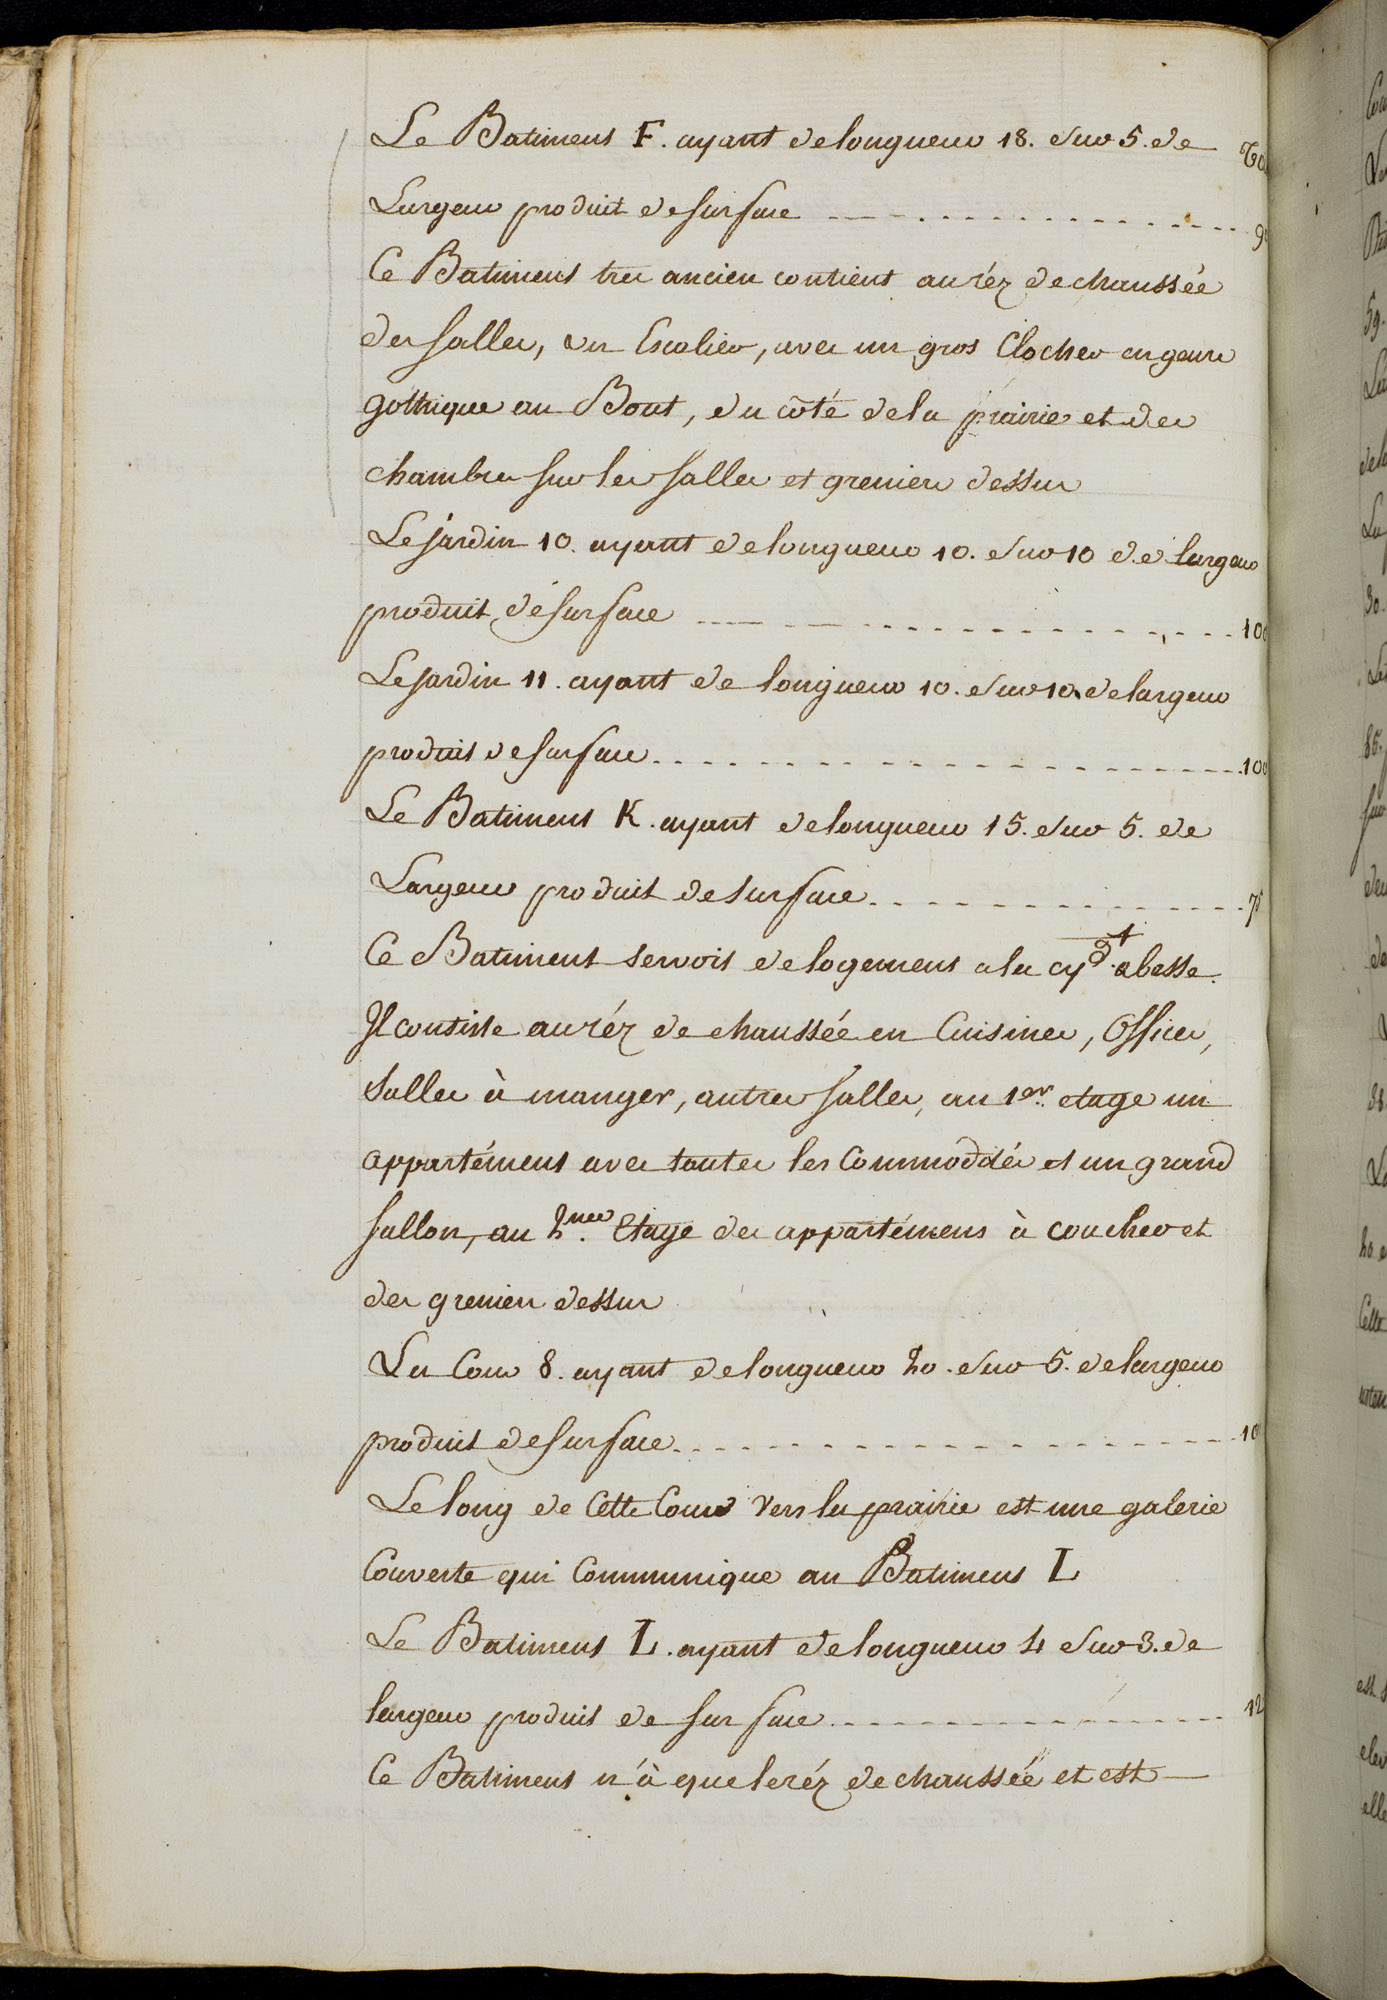 Le Batiment F. ayant de longueur 18. sur 5. de
Largeur produit de surface 9
Ce Batiment tres ancien contient au réz de chaussée
des salles, un Escalier, avec un gros Clocher en genre
gothique au Bout, du côté de la prairie et des
chambres sur les salles et greniers dessus
Le jardin 10. ayant de longueur 10. sur 10 de largeur
produit de surface 100
Le jardin 11. ayant de longueur 10. sur 10. de largeur
produit de surface 100
Le Batiment K. ayant de longueur 15. sur 5. de
Largeur produit de surface 75
Ce Batiment servoit de logement a la cy dt abesse.
Il consiste au réz de chaussée en Cuisines, Offices,
Salles à manger, autres salles, au 1er. etage un
appartément avec toutes les Commodités et un grand
sallon, au 2me. Etage des appartémens à coucher et
des greniers dessus
La Cour 8. ayant de longueur 20. sur 5. de largeur
produit de surface 10
Le long de Cette Cour vers la prairie est une galerie
Couverte qui Communique au Batiment L
Le Batiment L. ayant de longueur 4 sur 3. de
largeur produit de surface 12
Ce Batiment n'à que le réz de chaussée et est